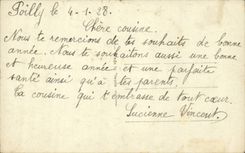 Poilly le 4-1-28.
Chère cousine.
Nous te remercions de tes souhaits de bonne
année. Nous te souhaitons aussi une bonne
et heureuse année et une parfaite
santé ainsi qu'à tes parents.
Ta cousine qui t'embrasse de tout cœur.
Lucienne Vincent.